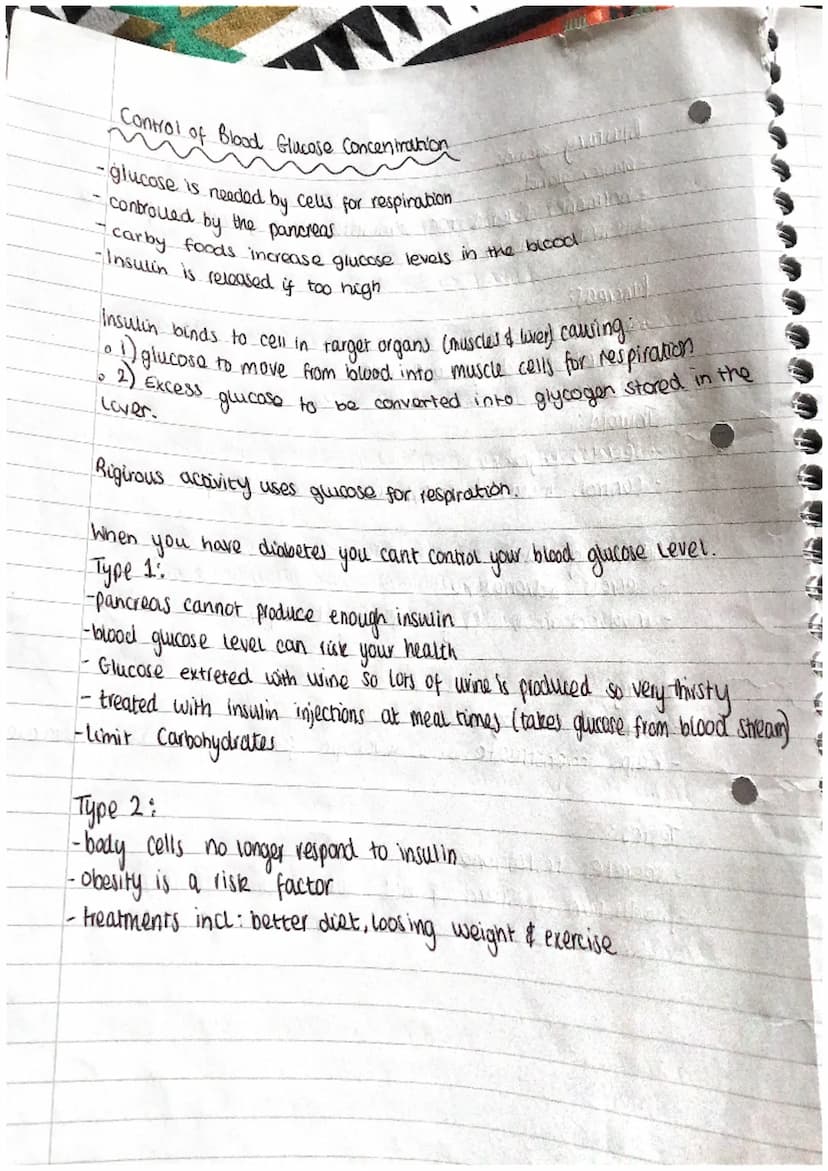 Control of Blood Glucose Concentration
- glucose is needed by cells for respiration
- controlled by the pancreas
- carby foods increase glucose levels in the blood
- Insulin is released if too high
Insulin binds to cell in target organs (muscles & liver) causing:
• 1) glucose to move from blood into muscle cells for respiration
• 2) Excess glucose to be converted into glycogen stored in the
liver.
Rigirous activity uses glucose for respiration.
When you have diabetes you cant control your blood glucose level.
Type 1:
- pancreas cannot produce enough insulin
- blood glucose level can risk your health
- Glucose extreted with urine so lots of urine is produced so very thirsty
- treated with insulin injections at meal times (takes glucose from blood stream)
- limit Carbohydrates
Type 2:
- body cells no longer respond to insulin
- obesity is a risk factor
- treatments incl: better diet, loosing weight & exercise